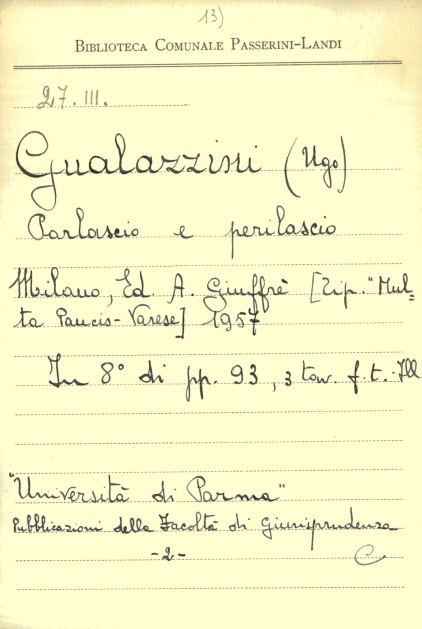 13)
BIBLIOTECA COMUNALE PASSERINI-LANDI
27. III.
Gualazzini (Ugo)
Parlascio e perilascio
Milano, Ed. A. Giuffrè [Tip. "Mul=
ta Paucis - Varese] 1957
In 8° di pp. 93, 3 tav. f. t. - Ill
"Università di Parma"
Pubblicazioni della Facoltà di Giurisprudenza
- 2 -
C